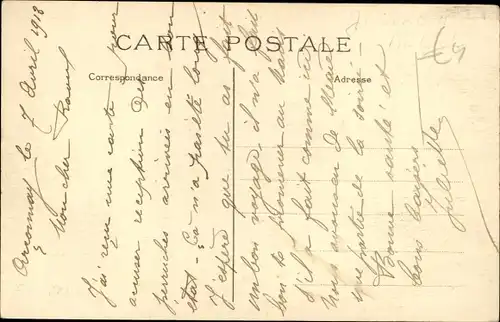 CARTE POSTALE
Correspondance
Adresse
le 7 Avril 1918
Mon cher Raoul
J'ai reçu une carte pour
accuser réception des
perruches arrivées en bon
état - Ça n'a pas été long
J'espère que tu as fait
un bon voyage, il n'a fait
bon te promener au
s'il a fait comme ici
nous avons eu de
une partie de la soirée -
Bonne santé et
bons baisers
Juliette